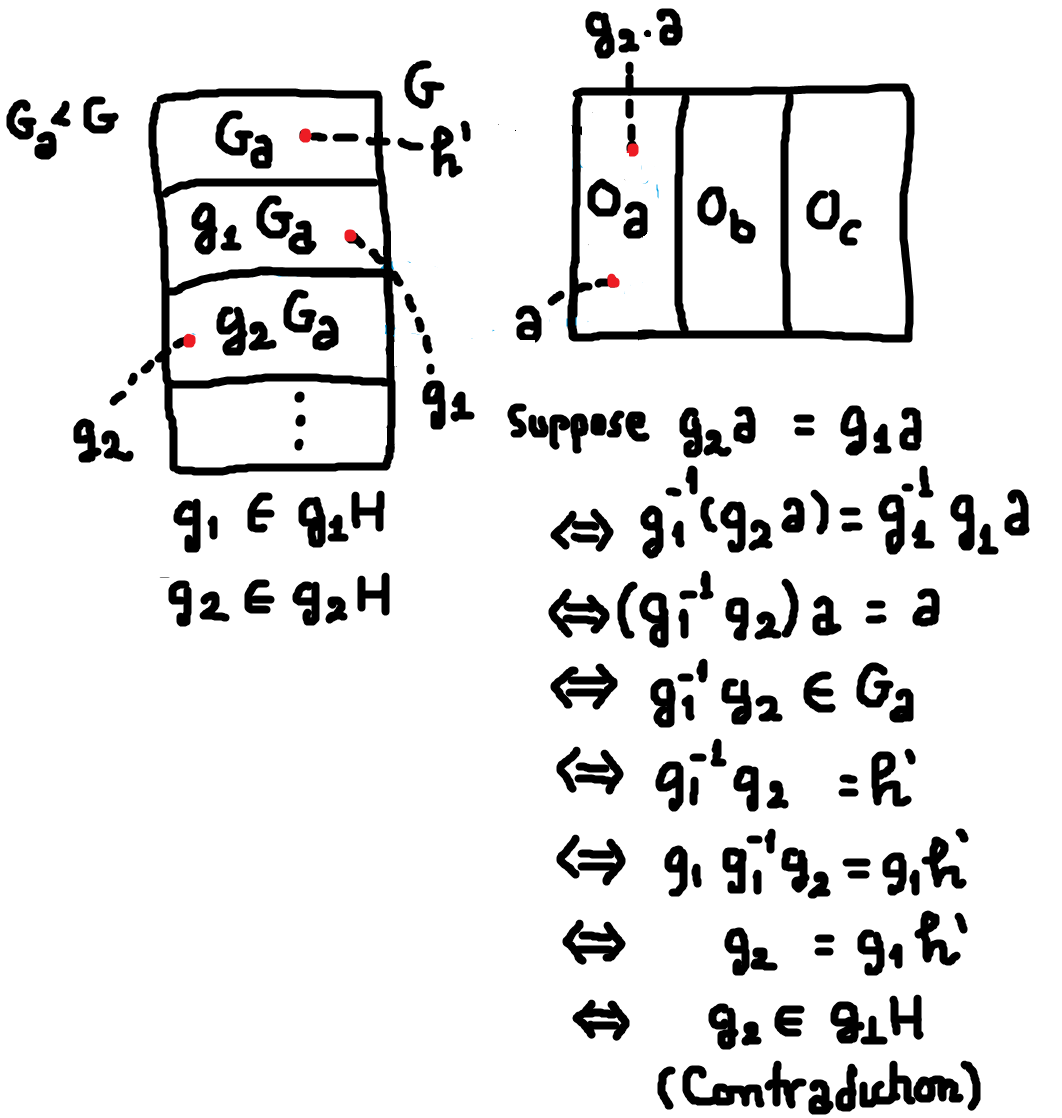 Gₐ < G
G
Gₐ
h'
g₁ Gₐ
g₂ Gₐ
⋮
g₂
g₁
g₁ ∈ g₁H
g₂ ∈ g₂H
g₂.a
Oₐ
O_b
O_c
a
Suppose g₂a = g₁a
⇔ g₁⁻¹(g₂a) = g₁⁻¹ g₁a
⇔ (g₁⁻¹ g₂)a = a
⇔ g₁⁻¹ g₂ ∈ Gₐ
⇔ g₁⁻¹ g₂ = h'
⇔ g₁ g₁⁻¹ g₂ = g₁h'
⇔ g₂ = g₁h'
⇔ g₂ ∈ g₁H
(Contradiction)